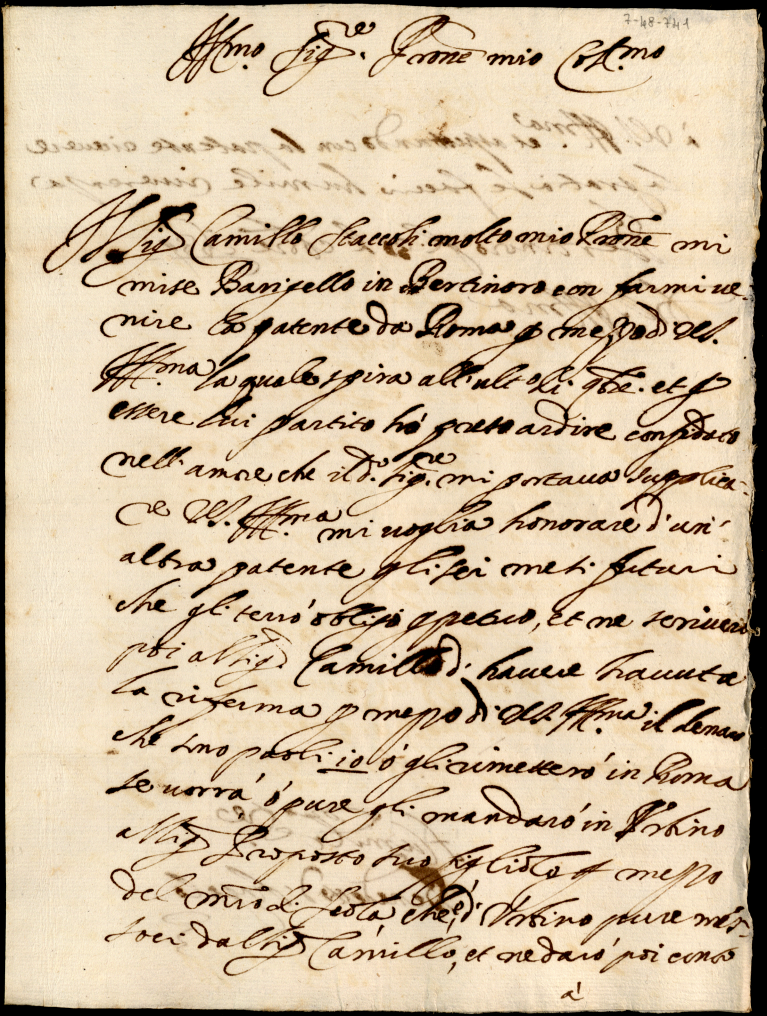 7-48-741
Ill.mo Sig.re P̃rone mio Col.mo
Il Sig.r Camillo Staccoli molto mio P̃rone mi
mise Barigello in Bertinoro con farmi ve-
nire la patente da Roma p mezzo di V.S.
Ill.ma la quale spira all'ult.o di et p
essere lui partito hò preso ardire confidato
nell'amore che il d.o Sig.re mi portava supplica-
re V.S. Ill.ma mi voglia honorare d'un'
altra patente p li sei mesi futuri
che gli terrò obligo ppetuo, et ne scriverò
poi al Sig.r Camillo di havere havuta
la riferma p mezzo di V.S. Ill.ma il denaro
che sono paoli 10 ò gli rimetterò in Roma
se vorrà ò pure gli mandarò in Urbino
al Sig.r Proposto suo figliolo p mezzo
del m̃ro di scola che è di Urbino pure mes-
soci dal Sig.r Camillo, et ne darò poi conto
à